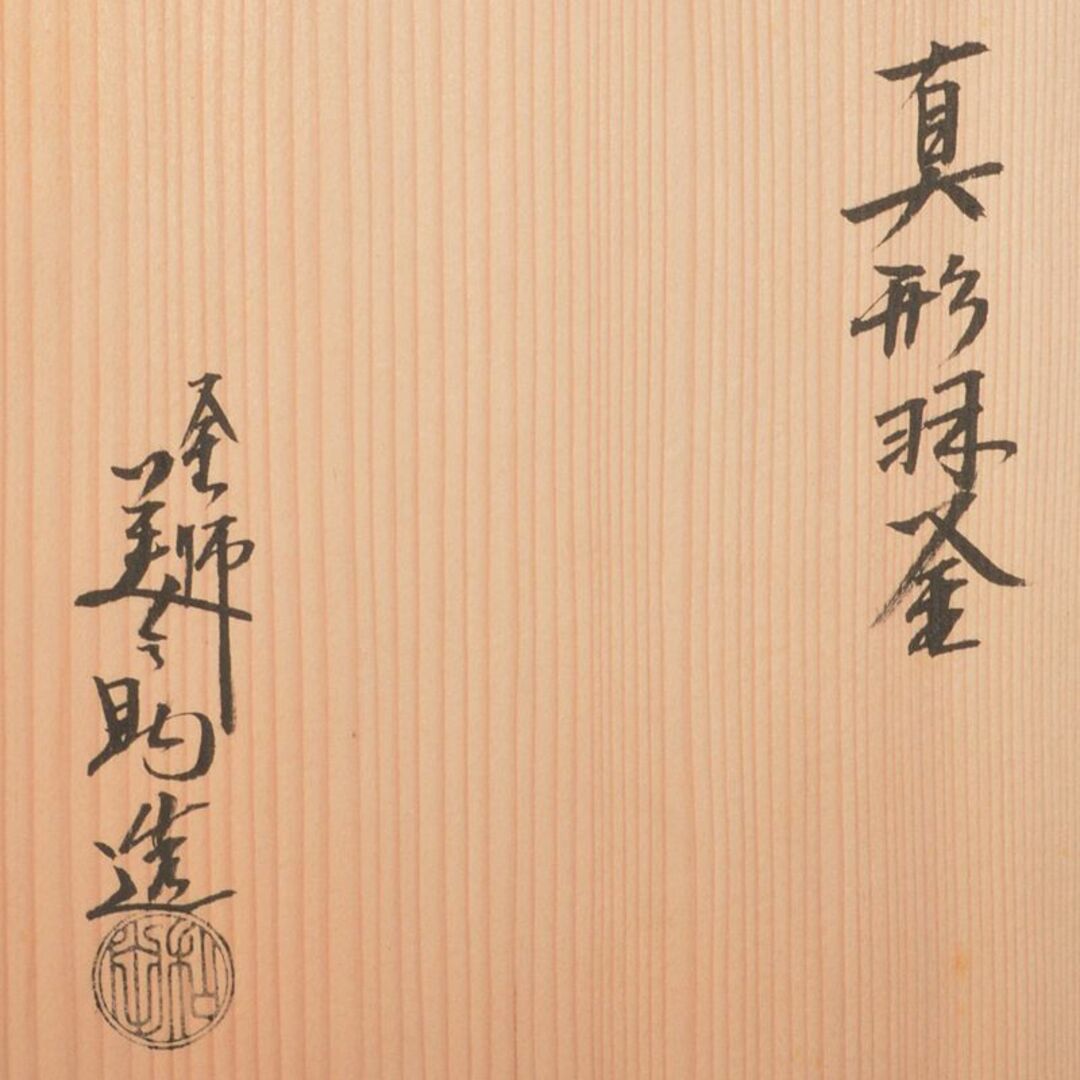 真形羽釜
釜師
美之助造